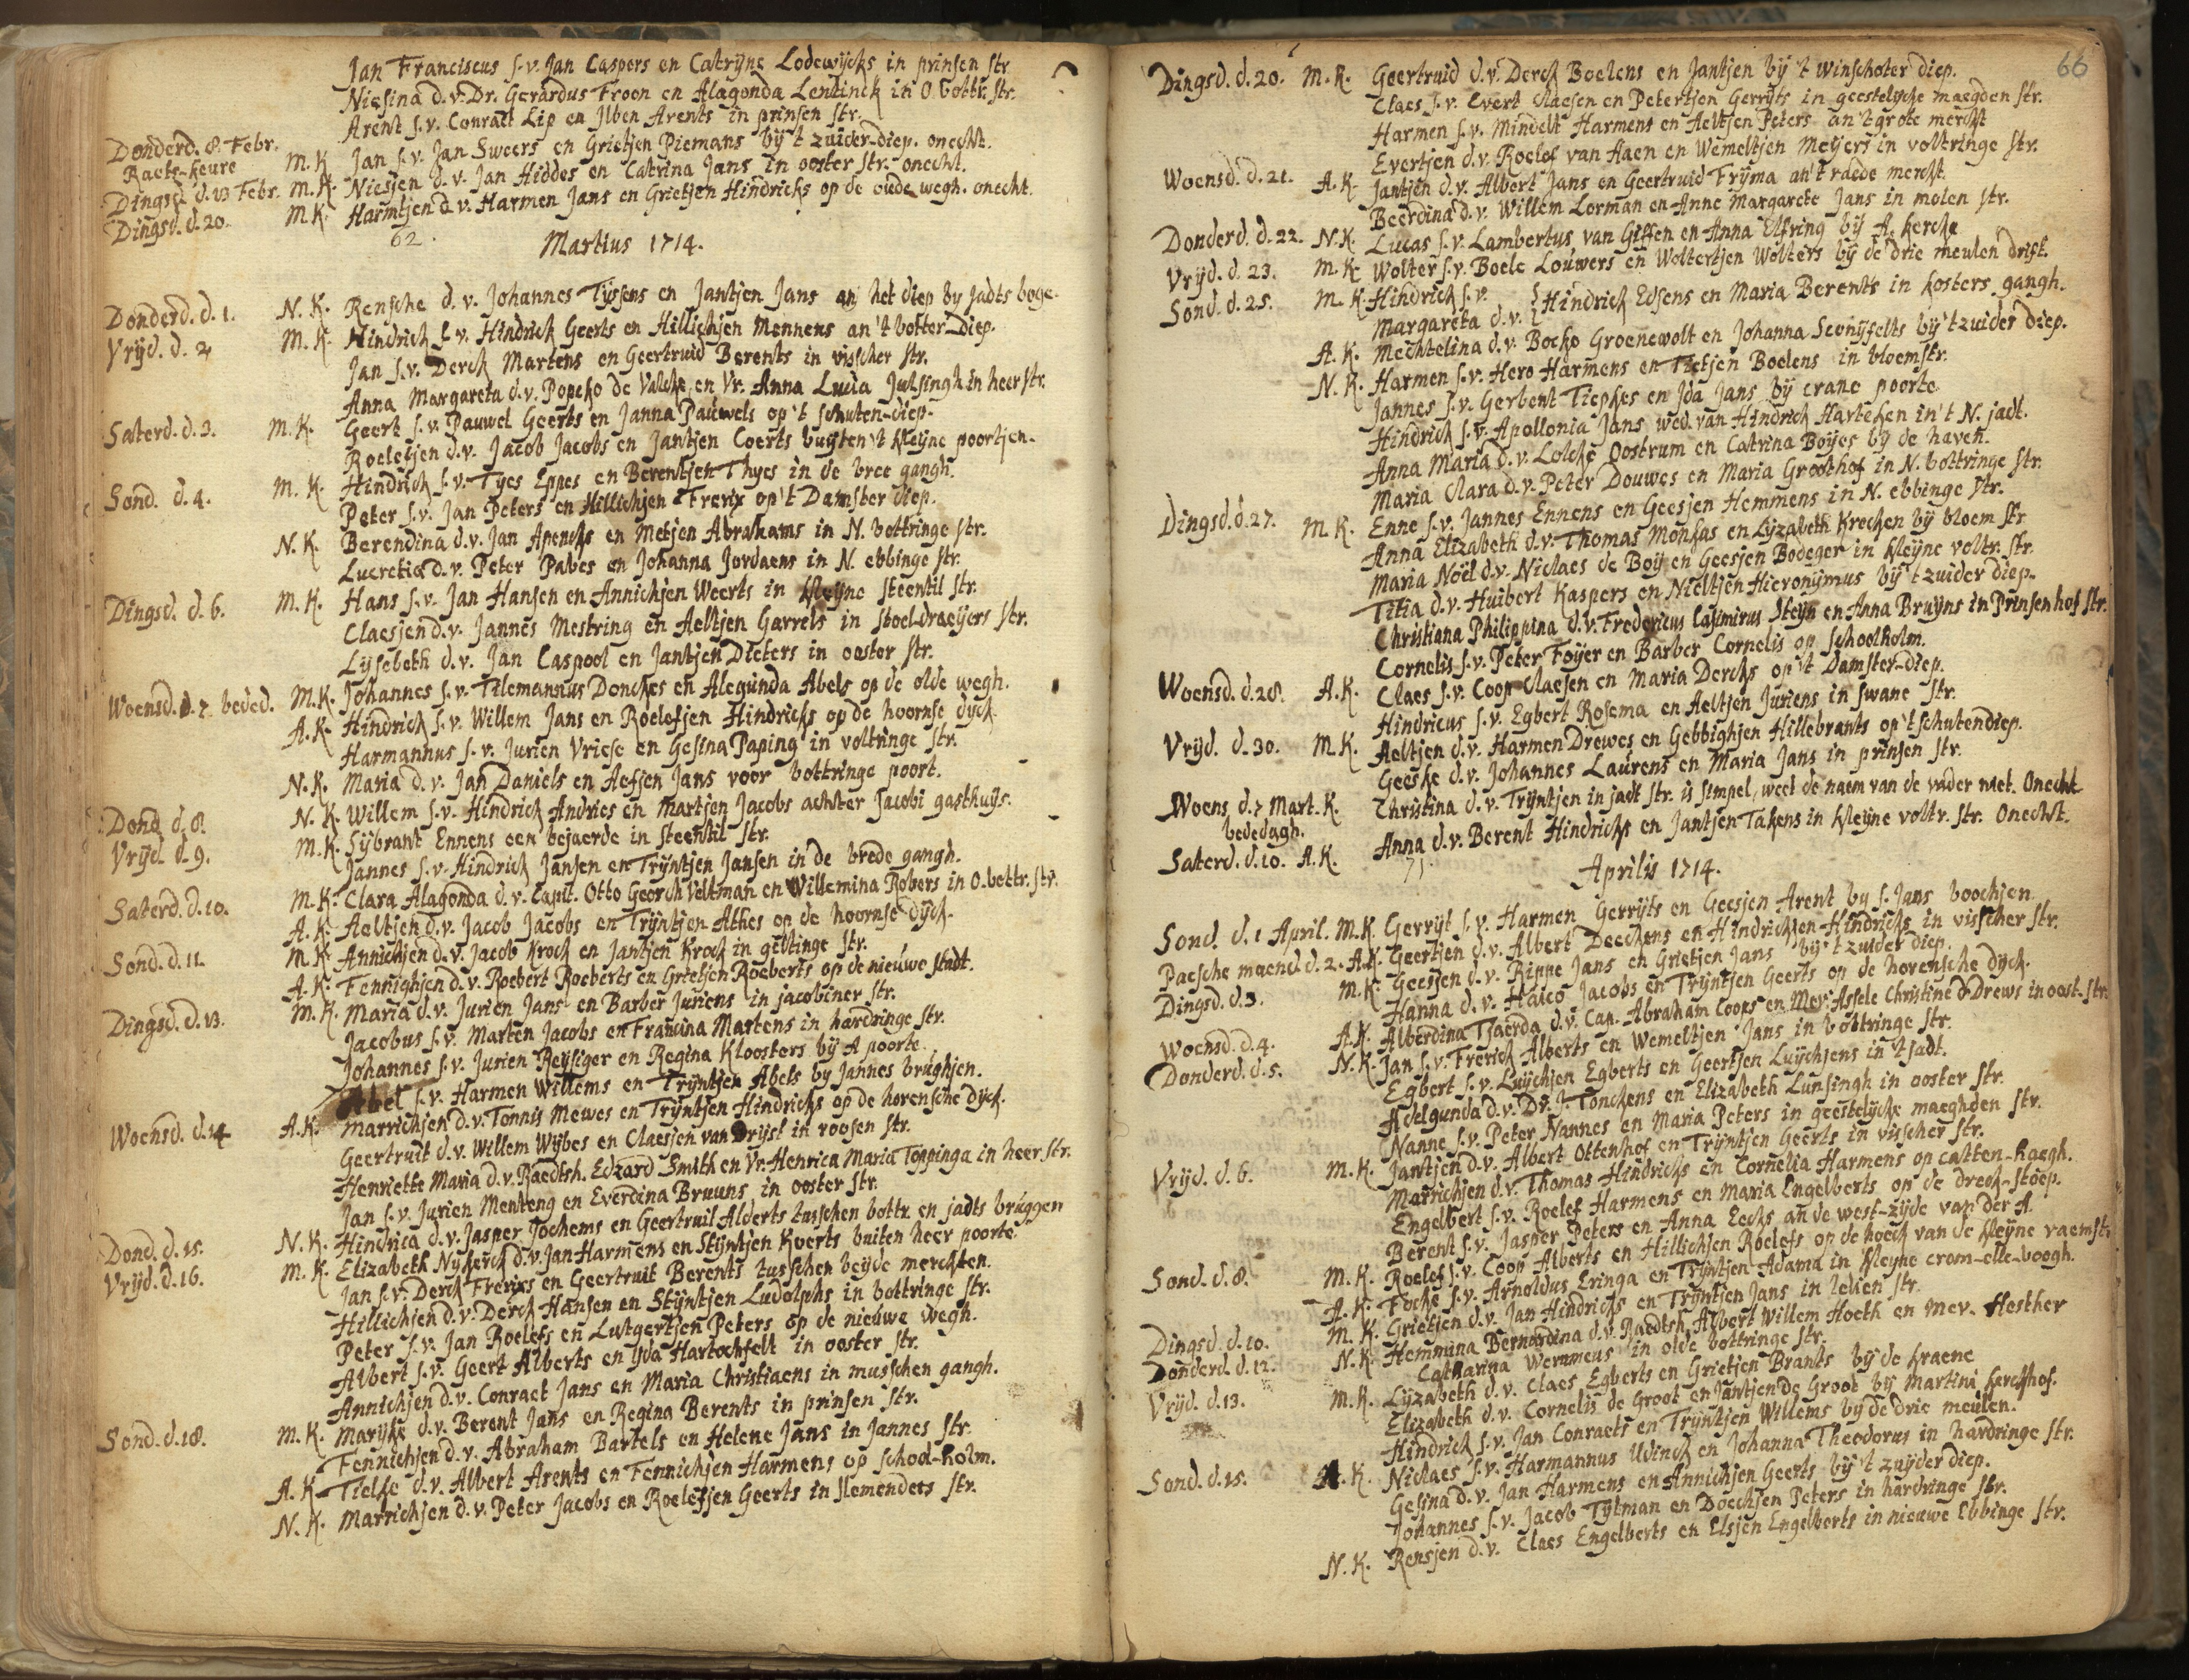 Jan Franciscus s.v. Jan Caspers en Catryne Lodewijcks in prinsen str
Niesina d.v. Dr. Gerardus Froon en Alagonda Lentinck in O. bottr. str.
Arent s.v. Conraet Lip en Ilben Arents in prinsen str.
Donderd. 8. Febr. Raets-keure M.K. Jan s.v. Jan Sweers en Grietjen Piemans bij 't zuider-diep. onecht.
Dingsd. d. 13 Febr. M.K. Niesjen d.v. Jan Hiddes en Catrina Jans in ooster str. onecht.
Dingsd. d. 20. M.K. Harmtjen d.v. Harmen Jans en Grietjen Hindricks op de oude wegh. onecht.
62.
Martius 1714.
Donderd. d. 1. N.K. Rensche d.v. Johannes Tijssens en Jantjen Jans an het diep by Jadts boge.
Vrijd. d. 2 M.K. Hindrick s.v. Hindrick Geerts en Hillichjen Mennens an 't botter diep.
Jan s.v. Derck Martens en Geertruid Berents in visscher str.
Anna Margareta d.v. Popcko de Valcke en Vr. Anna Lucia Julsingh in heer str.
Saterd. d. 3. M.K. Geert s.v. Pauwel Geerts en Janna Pauwels op 't schuten-diep.
Roelefjen d.v. Jacob Jacobs en Jantjen Coerts buijten 't kleyne poortjen.
Sond. d. 4. M.K. Hindrick s.v. Tyes Eppes en Berentjen Thyes in de bree gangh.
Peter s.v. Jan Peters en Hillichjen Frerix op 't Damster diep.
N.K. Berendina d.v. Jan Apencks en Metjen Abrahams in N. bottringe str.
Lucretia d.v. Peter Pabes en Johanna Jordaens in N. ebbinge str.
Dingsd. d. 6. M.K. Hans s.v. Jan Hansen en Annichjen Weerts in kleyne steentil str.
Claesjen d.v. Jannes Mestring en Aeltjen Garrels in stoel-draeijers str.
Lijsebeth d.v. Jan Caspool en Jantjen Dieters in ooster str.
Woensd. d. 7. beded. M.K. Johannes s.v. Tilemannus Donckes en Alegunda Abels op de olde wegh.
A.K. Hindrick s.v. Willem Jans en Roelefjen Hindricks op de hoornse dijck
Harmannus s.v. Jurien Vriese en Gesina Paping in voltringe str.
N.K. Maria d.v. Jan Daniels en Aefjen Jans voor bottringe poort.
Dond. d. 8. N.K. Willem s.v. Hindrick Andries en Martjen Jacobs achter Jacobi gasthuijs.
Vrijd. d. 9. M.K. Sijbrant Ennens een bejaerde in steentil str.
Jannes s.v. Hindrick Jansen en Trijntjen Jansen in de brede gangh.
Saterd. d. 10. M.K. Clara Alagonda d.v. Capit. Otto Georch Veltman en Willemina Robers in O. bottr. str.
A.K. Aeltjen d.v. Jacob Jacobs en Trijntjen Athes op de hoornse dijck.
Sond. d. 11. M.K. Annichjen d.v. Jacob Krock en Jantjen Krock in geltinge str.
A.K. Fennighjen d.v. Roebert Roeberts en Grietjen Roeberts op de nieuwe stadt.
Dingsd. d. 13. M.K. Maria d.v. Jurien Jans en Barber Juriens in jacobiner str.
Jacobus s.v. Marten Jacobs en Francina Martens in hardringe str.
Johannes s.v. Jurien Reysiger en Regina Kloosters bij A poorte.
Abel s.v. Harmen Willems en Trijntjen Abels by Jannes brughjen.
Woensd. d. 14 A.K. Marrichjen d.v. Tonnis Mewes en Trijntjen Hindricks op de horensche dijck.
Geertruit d.v. Willem Wijbes en Claesjen van Drijst in roosen str.
Henriette Maria d.v. Raedtsh. Edzard Smith en Vr. Henrica Maria Toppinga in heer str.
Jan s.v. Jurien Menteng en Everdina Bruuns in ooster str.
Dond. d. 15. N.K. Hindrica d.v. Jasper Jochems en Geertruil Alderts tusschen bottr. en jadts bruggen
Vrijd. d. 16. M.K. Elizabeth Nykerck d.v. Jan Harmens en Stijntjen Koerts buiten heer poorte.
Jan s.v. Derck Frerixs en Geertruit Berents tusschen beijde merckten.
Hillichjen d.v. Derck Hansen en Stijntjen Ludolphs in bottringe str.
Peter s.v. Jan Roelefs en Lutgertjen Peters op de nieuwe wegh.
Albert s.v. Geert Alberts en Yda Hartochfelt in ooster str.
Annichjen d.v. Conraet Jans en Maria Christiaens in musschen gangh.
Sond. d. 18. M.K. Marijke d.v. Berent Jans en Regina Berents in prinsen str.
Fennichjen d.v. Abraham Bartels en Helene Jans in Jannes str.
A.K. Tielke d.v. Albert Arents en Fennichjen Harmens op schoolholm.
N.K. Marrichjen d.v. Peter Jacobs en Roelefjen Geerts in slemenders str.
66
Dingsd. d. 20. M.K. Geertruid d.v. Derck Boelens en Jantjen bij 't Winschoter diep.
Claes s.v. Evert Claesen en Petertjen Gerrijts in geestelycke maegden str.
Harmen s.v. Mindelt Harmens en Aeltjen Peters an 't grote merckt
Evertjen d.v. Roelef van Haen en Wemeltjen Meijers in voltringe str.
Woensd. d. 21. A.K. Jantjen d.v. Albert Jans en Geertruid Frijma an 't raede merckt.
Beerdina d.v. Willem Lorman en Anne Margarete Jans in molen str.
Donderd. d. 22. N.K. Lucas s.v. Lambertus van Giffen en Anna Elfring bij A. kercke
Vrijd. d. 23. M.K. Wolter s.v. Boele Louwers en Woltertjen Wolters bij de drie meulen drift.
Sond. d. 25. M.K. Hindrick s.v. Hindrick Edsens en Maria Berents in kosters gangh.
Margareta d.v.
A.K. Mechtelina d.v. Bocko Groenewolt en Johanna Sconijfelts bij 't zuider diep.
N.K. Harmen s.v. Hero Harmens en Tietjen Boelens in bloemstr.
Jannes s.v. Gerbent Tiepkes en Ida Jans bij crane poorte
Hindrick s.v. Apollonia Jans wed. van Hindrick Harteken in 't N. jadt.
Anna Maria d.v. Lolcke Oostrum en Catrina Boijes bij de haven.
Maria Clara d.v. Peter Douwes en Maria Groothof in N. bottringe str.
Dingsd. d. 27. M.K. Enne s.v. Jannes Ennens en Geesjen Hemmens in N. ebbinge str.
Anna Elizabeth d.v. Thomas Monkas en Lyzabeth Krecken bij bloem str
Maria Noël d.v. Niclaes de Boij en Geesjen Bodeger in kleyne voltr. str.
Titia d.v. Huibert Kaspers en Nieltjen Hieronijmus bij 't zuider diep.
Christiana Philippina d.v. Fredericus Casimirus Steijn en Anna Bruijns in Prinsenhof str.
Cornelis s.v. Peter Foyer en Barber Cornelis op schoolholm.
Woensd. d. 28. A.K. Claes s.v. Coop Claesen en Maria Dercks op 't Damster-diep.
Hindricus s.v. Egbert Rosema en Aeltjen Juriens in swane str.
Vrijd. d. 30. M.K. Aeltjen d.v. Harmen Drewes en Gebbighjen Hillebrants op 't schutendiep.
Geeske d.v. Johannes Laurens en Maria Jans in prinsen str.
Woens d. 7 Mart. K. bededagh. Christina d.v. Trijntjen in jadt str. is simpel, weet de naem van de vader niet. Onecht
Saterd. d. 10. A.K. Anna d.v. Berent Hindricks en Jantjen Takens in kleyne voltr. str. Onecht.
71.
Aprilis 1714.
Sond. d. 1 April. M.K. Gerrijt s.v. Harmen Gerrijts en Geesjen Arent by S. Jans boochjen.
Paesche maend d. 2. A.K. Geertjen d.v. Albert Deeckens en Hindrickjen Hindricks in visscher str.
Dingsd. d. 3. M.K. Geesjen d.v. Rippe Jans en Grietjen Jans bij 't zuider diep.
Hanna d.v. Haico Jacobs en Trijntjen Geerts op de horensche dijck.
Woensd. d. 4. A.K. Alberdina Tjaerda d.v. Cap. Abraham Coops en Mev. Assele Christine Drews in oost. str.
Donderd. d. 5. N.K. Jan s.v. Frerick Alberts en Wemeltjen Jans in bottringe str.
Egbert s.v. Luijchjen Egberts en Geertjen Luijchjens in 't jadt.
Adelgunda d.v. Dr. J. Tonckens en Elizabeth Lunsingh in ooster str.
Nanne s.v. Peter Nannes en Maria Peters in geestelijcke maeghden str.
Vrijd. d. 6. M.K. Jantjen d.v. Albert Ottenhof en Trijntjen Geerts in visscher str.
Marrichjen d.v. Thomas Hindricks en Cornelia Harmens op catten-haegh.
Engelbert s.v. Roelef Harmens en Maria Engelberts op de dreck-stoep.
Berent s.v. Jasper Peters en Anna Eecks an de west-zijde van der A.
Sond. d. 8. M.K. Roelef s.v. Coop Alberts en Hillichjen Roelefs op de hoeck van de kleyne raemstr.
A.K. Focke s.v. Arnoldus Eringa en Trijntjen Adama in kleyne crom-elle-boogh.
Dingsd. d. 10. M.K. Grietjen d.v. Jan Hindricks en Trijntjen Jans in lelien str.
Donderd. d. 12. N.K. Hemmina Bernardina d.v. Raedtsh. Albert Willem Hoeth en Mev. Hesther
Catharina Wernmeus in olde bottringe str.
Vrijd. d. 13. M.K. Lyzabeth d.v. Claes Egberts en Grietjen Brants bij de kraene
Elizabeth d.v. Cornelis de Groot en Jantjen de Groot bij Martini kerckhof.
Hindrick s.v. Jan Conraets en Trijntjen Willems bij de drie meulen.
Sond. d. 15. A.K. Niclaes s.v. Harmannus Udinck en Johanna Theodorus in hardringe str.
Gesina d.v. Jan Harmens en Annichjen Geerts bij 't zuyder diep.
Johannes s.v. Jacob Tijtman en Doechjen Peters in hardringe str.
N.K. Rensjen d.v. Claes Engelberts en Elsjen Engelberts in nieuwe Ebbinge str.